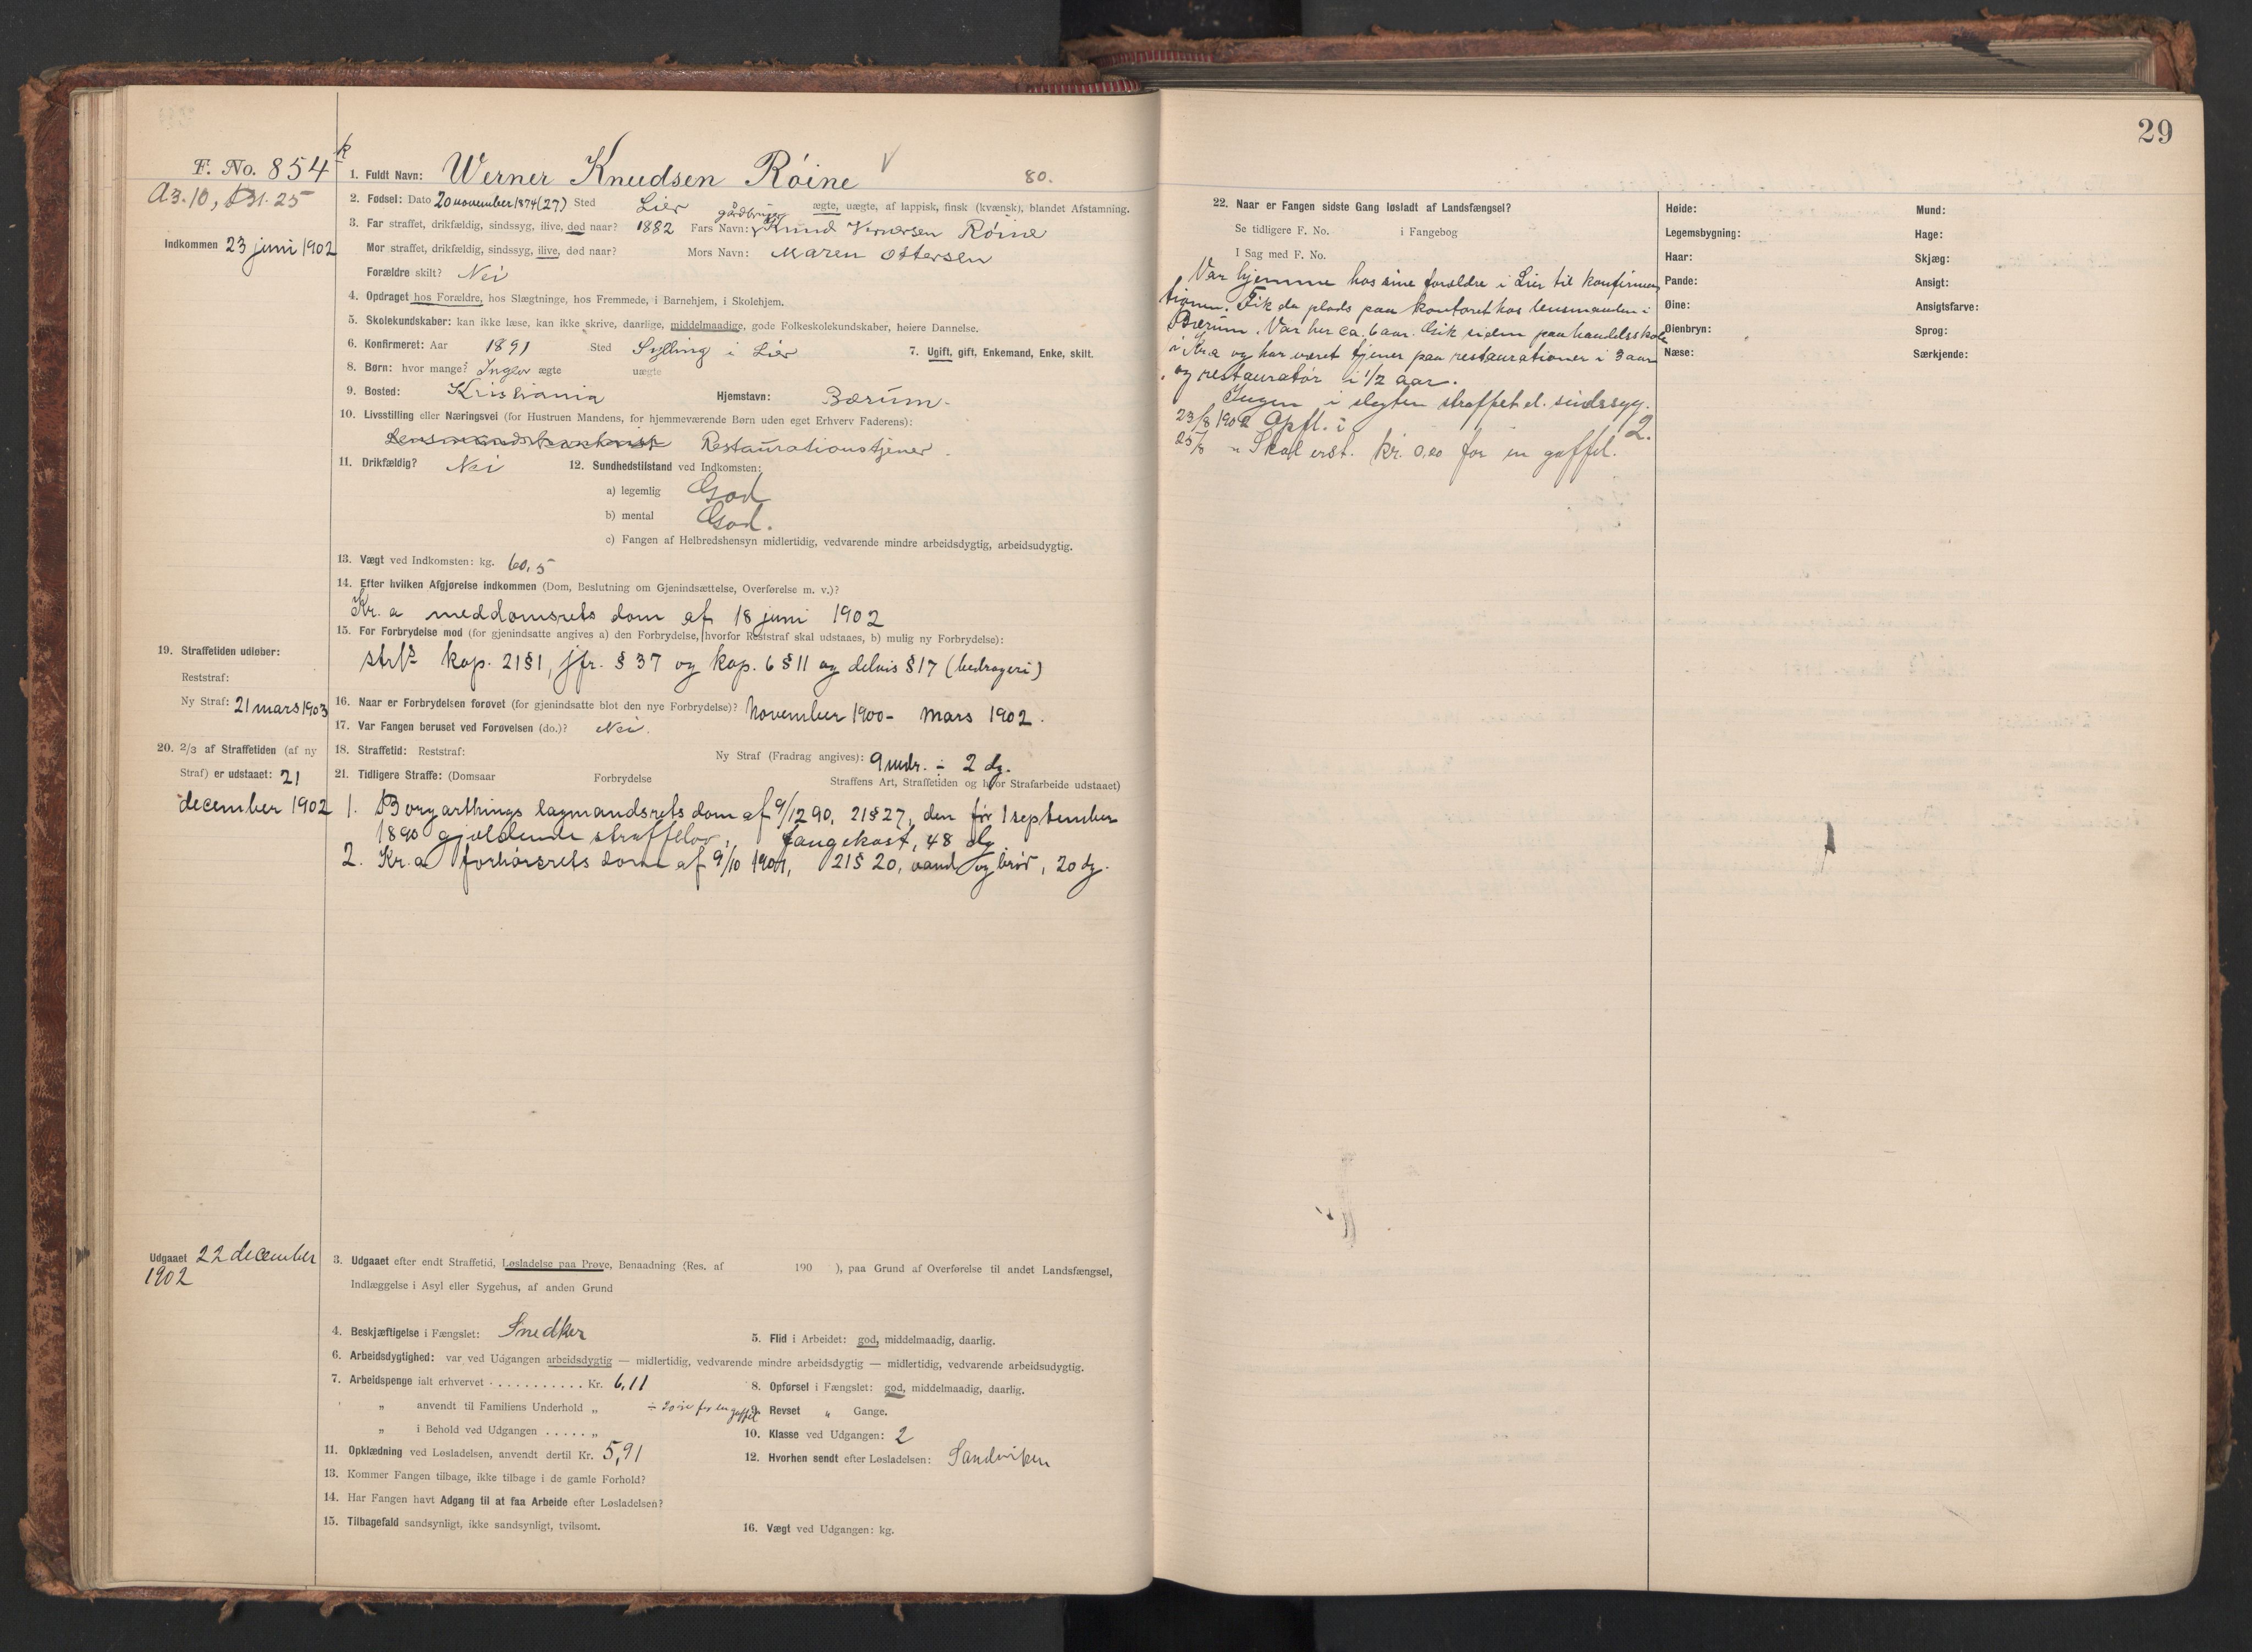 29
F. No. 854 k
A3.10, B31.25
Indkommen 23 juni 1902
1. Fuldt Navn: Werner Knudsen Róine V 80.
2. Fødsel: Dato 20 november 1874 (27) Sted Lier ægte, uægte, af lappisk, finsk (kvænsk), blandet Afstamning.
3. Far straffet, drikfældig, sindssyg, ilive, død naar? 1882 Fars Navn: gårdbruger Knud Vernersen Róine
Mor straffet, drikfældig, sindssyg, ilive, død naar? Mors Navn: Maren Ottersen
Forældre skilt? Nei
4. Opdraget hos Forældre, hos Slægtninge, hos Fremmede, i Barnehjem, i Skolehjem.
5. Skolekundskaber: kan ikke læse, kan ikke skrive, daarlige, middelmaadige, gode Folkeskolekundskaber, høiere Dannelse.
6. Konfirmeret: Aar 1891 Sted Sylling i Lier 7. Ugift, gift, Enkemand, Enke, skilt.
8. Børn: hvor mange? Ingen ægte uægte
9. Bosted: Kristiania Hjemstavn: Bærum.
10. Livsstilling eller Næringsvei (for Hustruen Mandens, for hjemmeværende Børn uden eget Erhverv Faderens):
Restaurationstjener.
11. Drikfældig? Nei 12. Sundhedstilstand ved Indkomsten:
a) legemlig God
b) mental God.
c) Fangen af Helbredshensyn midlertidig, vedvarende mindre arbeidsdygtig, arbeidsudygtig.
13. Vægt ved Indkomsten: kg. 60,5
14. Efter hvilken Afgjørelse indkommen (Dom, Beslutning om Gjenindsættelse, Overførelse m. v.)?
Kr.a meddomsrets dom af 18 juni 1902
15. For Forbrydelse mod (for gjenindsatte angives a) den Forbrydelse, hvorfor Reststraf skal udstaaes, b) mulig ny Forbrydelse):
kap. 21 § 1, jfr. § 37 og kap. 6 § 11 og delvis § 17 (bedrageri)
16. Naar er Forbrydelsen forøvet (for gjenindsatte blot den nye Forbrydelse)? November 1900 - mars 1902.
17. Var Fangen beruset ved Forøvelsen (do.)? Nei.
18. Straffetid: Reststraf: Ny Straf (Fradrag angives): 9 mdr. ÷ 2 dg.
19. Straffetiden udløber:
Reststraf:
Ny Straf: 21 mars 1903
20. 2/3 af Straffetiden (af ny
Straf) er udstaaet: 21
december 1902
21. Tidligere Straffe: (Domsaar Forbrydelse Straffens Art, Straffetiden og hvor Strafarbeide udstaaet)
1. Borgarthings lagmandsrets dom af 9/12 90, 21 § 27, den før 1 september
1890 gjældende straffelov, fangekost, 48 dg.
2. Kr.a forhørsrets dom af 9/10 1901, 21 § 20, vand og brød, 20 dg.
Udgaaet 22 december
1902
3. Udgaaet efter endt Straffetid, Løsladelse paa Prøve, Benaadning (Res. af 190 ), paa Grund af Overførelse til andet Landsfængsel,
Indlæggelse i Asyl eller Sygehus, af anden Grund
4. Beskjæftigelse i Fængslet: Snedker 5. Flid i Arbeidet: god, middelmaadig, daarlig.
6. Arbeidsdygtighed: var ved Udgangen arbeidsdygtig — midlertidig, vedvarende mindre arbeidsdygtig — midlertidig, vedvarende arbeidsudygtig.
7. Arbeidspenge ialt erhvervet . . . . . . . . . . . Kr. 6,11 8. Opførsel i Fængslet: god, middelmaadig, daarlig.
„ anvendt til Familiens Underhold „ ÷ 20 øre for en gaffel 9. Revset „ Gange.
„ i Behold ved Udgangen . . . . . „ 10. Klasse ved Udgangen: 2
11. Opklædning ved Løsladelsen, anvendt dertil Kr. 5,91 12. Hvorhen sendt efter Løsladelsen: Sandviken
13. Kommer Fangen tilbage, ikke tilbage i de gamle Forhold?
14. Har Fangen havt Adgang til at faa Arbeide efter Løsladelsen?
15. Tilbagefald sandsynligt, ikke sandsynligt, tvilsomt. 16. Vægt ved Udgangen: kg.
22. Naar er Fangen sidste Gang løsladt af Landsfængsel?
Se tidligere F. No. i Fangebog
I Sag med F. No.
Var hjemme hos sine forældre i Lier til konfirma
tionen. Fik da plads paa kontoret hos lensmanden i
Bærum. Var her ca. 6 aar. Gik siden paa handelsskole
i Kr.a og har været tjener paa restaurationer i 3 aar
og restauratør i 1/2 aar.
Ingen i slegten straffet el. sindssyg.
23/8 1902 Opfl. i 2.
25/8 „ Skal erst. kr. 0,20 for en gaffel.
Høide: Mund:
Legemsbygning: Hage:
Haar: Skjæg:
Pande: Ansigt:
Øine: Ansigtsfarve:
Øienbryn: Sprog:
Næse: Særkjende: